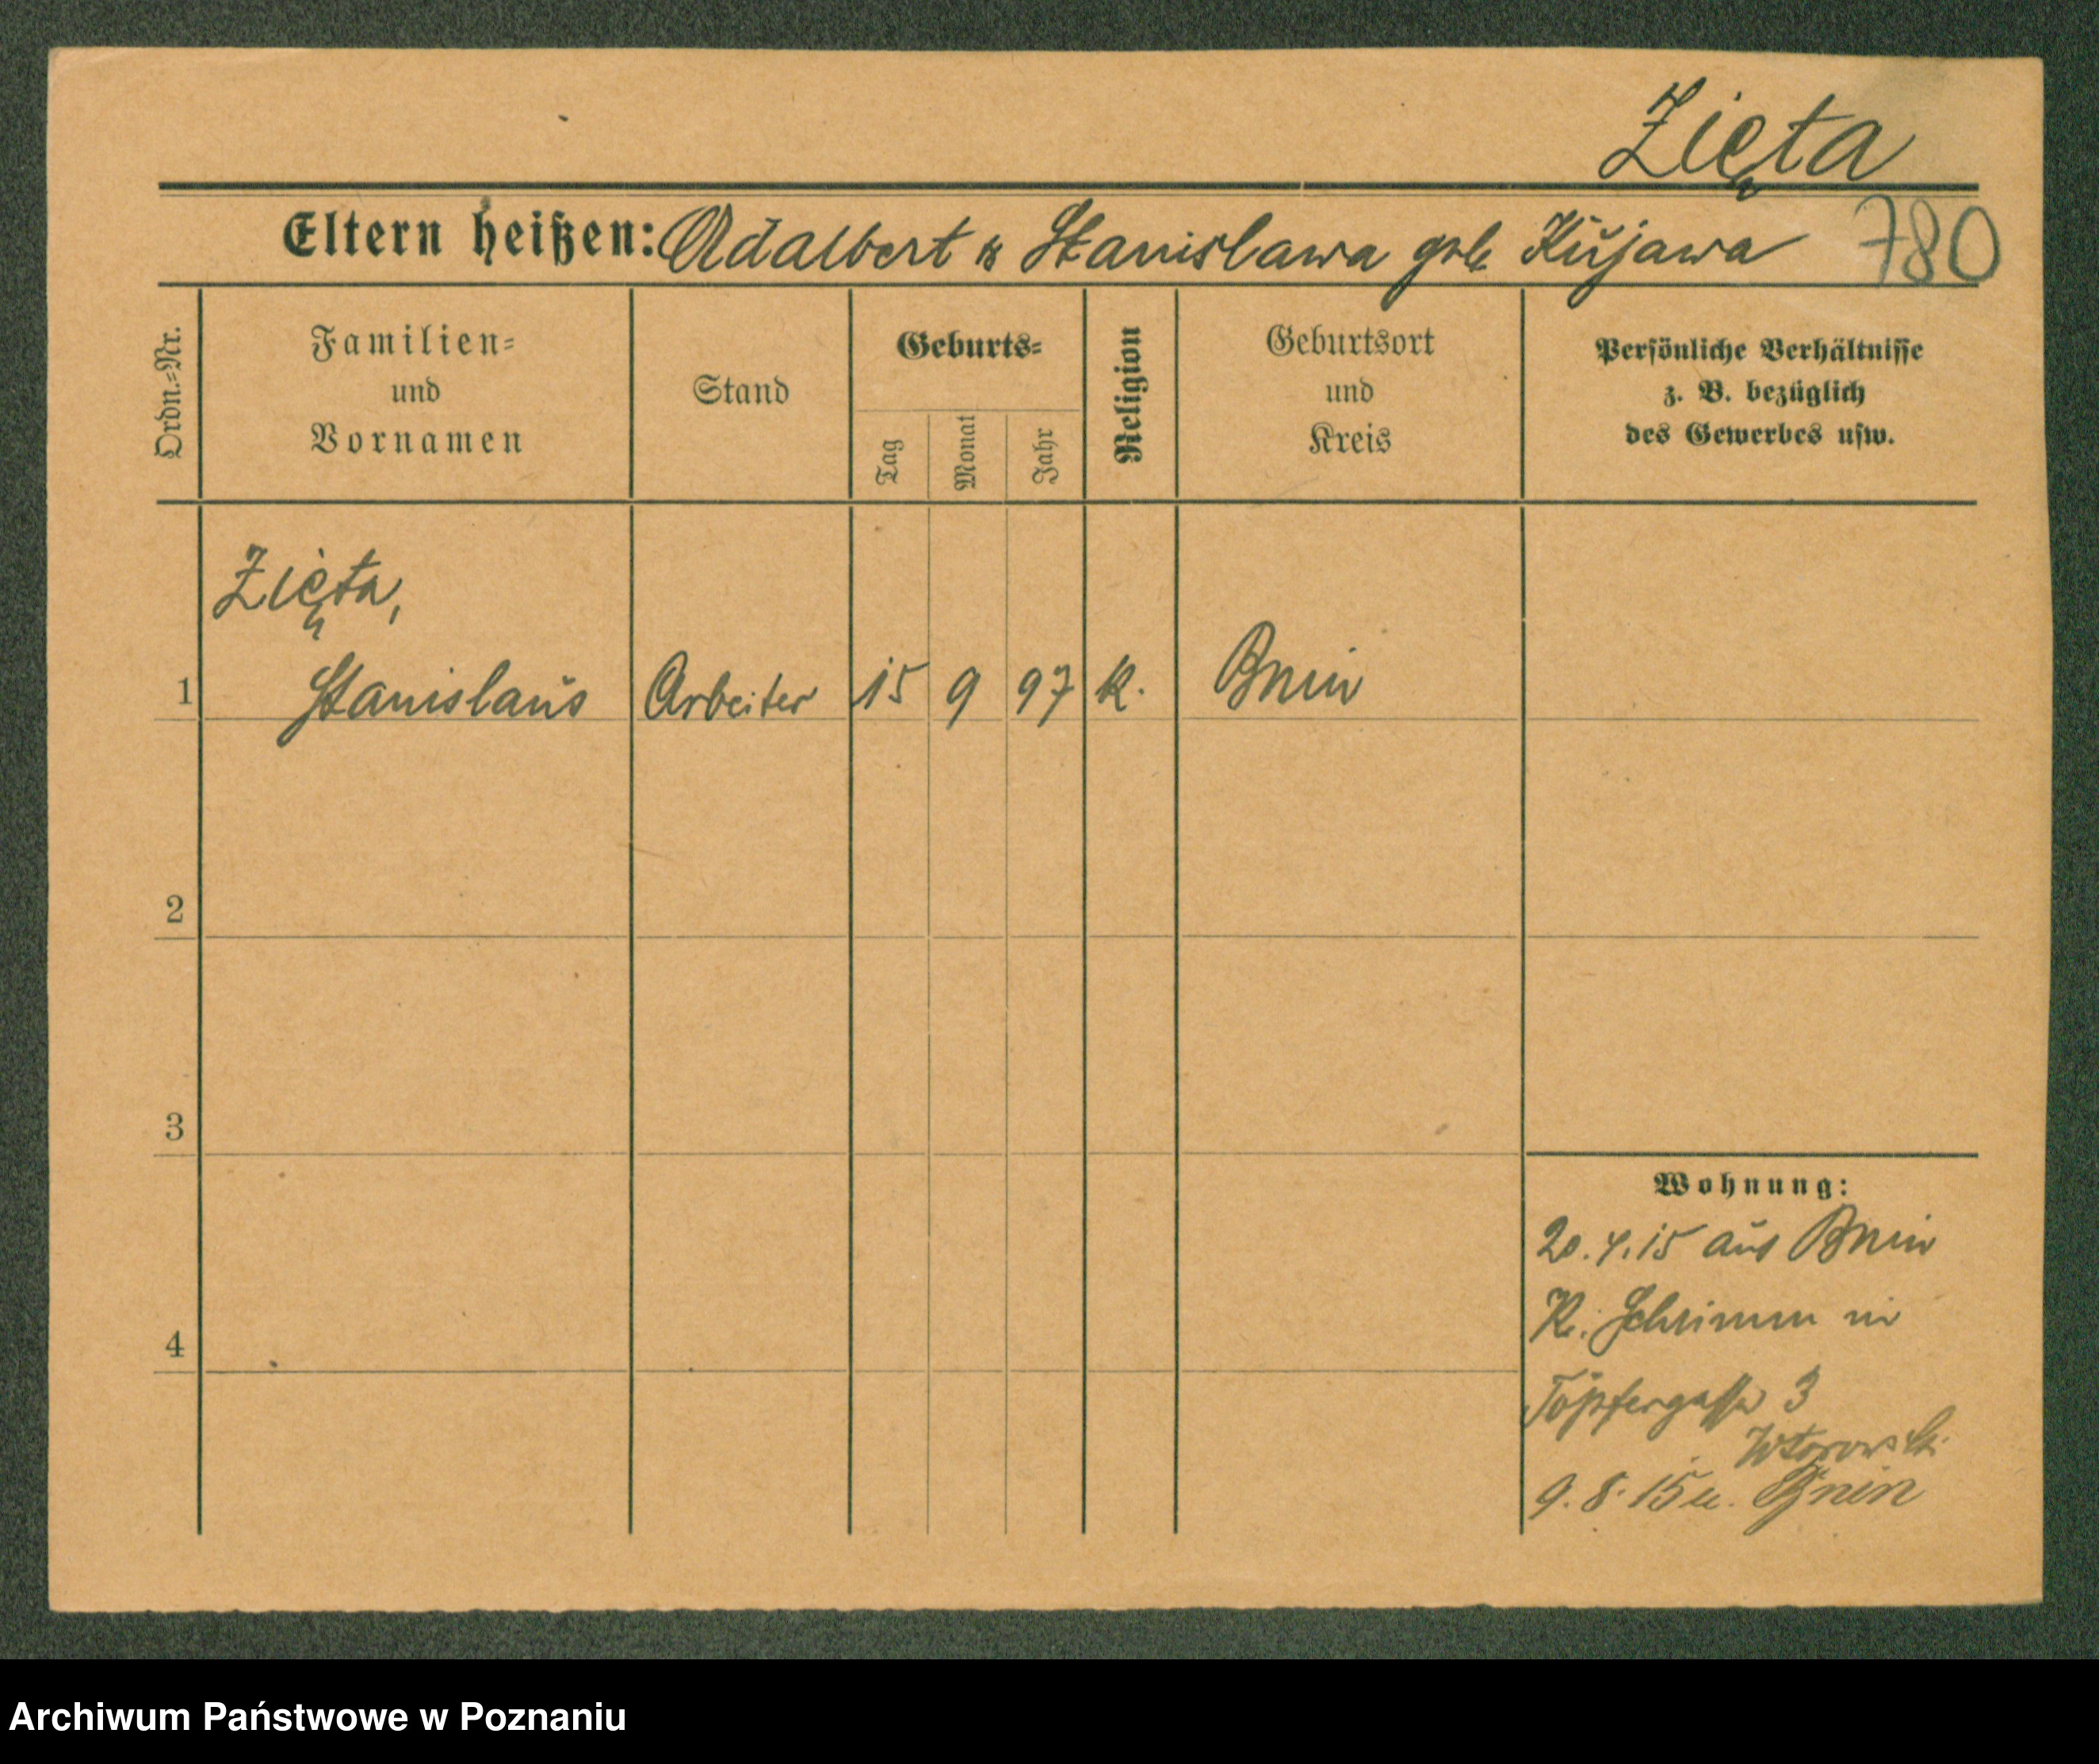 Zięta
Eltern heißen: Adalbert u Stanislawa geb Kujawa 780
Ordn.-Nr.
Familien-
und
Vornamen
Stand
Geburts-
Tag
Monat
Jahr
Religion
Geburtsort
und
Kreis
Persönliche Verhältnisse
z. B. bezüglich
des Gewerbes usw.
Zięta,
1 Stanislaus Arbeiter 15 9 97 k. Bnin
2
3
4
Wohnung:
20.4.15 aus Bnin
Kr. Schrimm in
Töpfergasse 3
9.8.15 u. Bnin
Archiwum Państwowe w Poznaniu